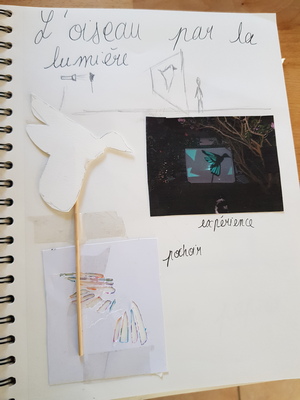 L'oiseau par la
lumière
expérience
pochoir